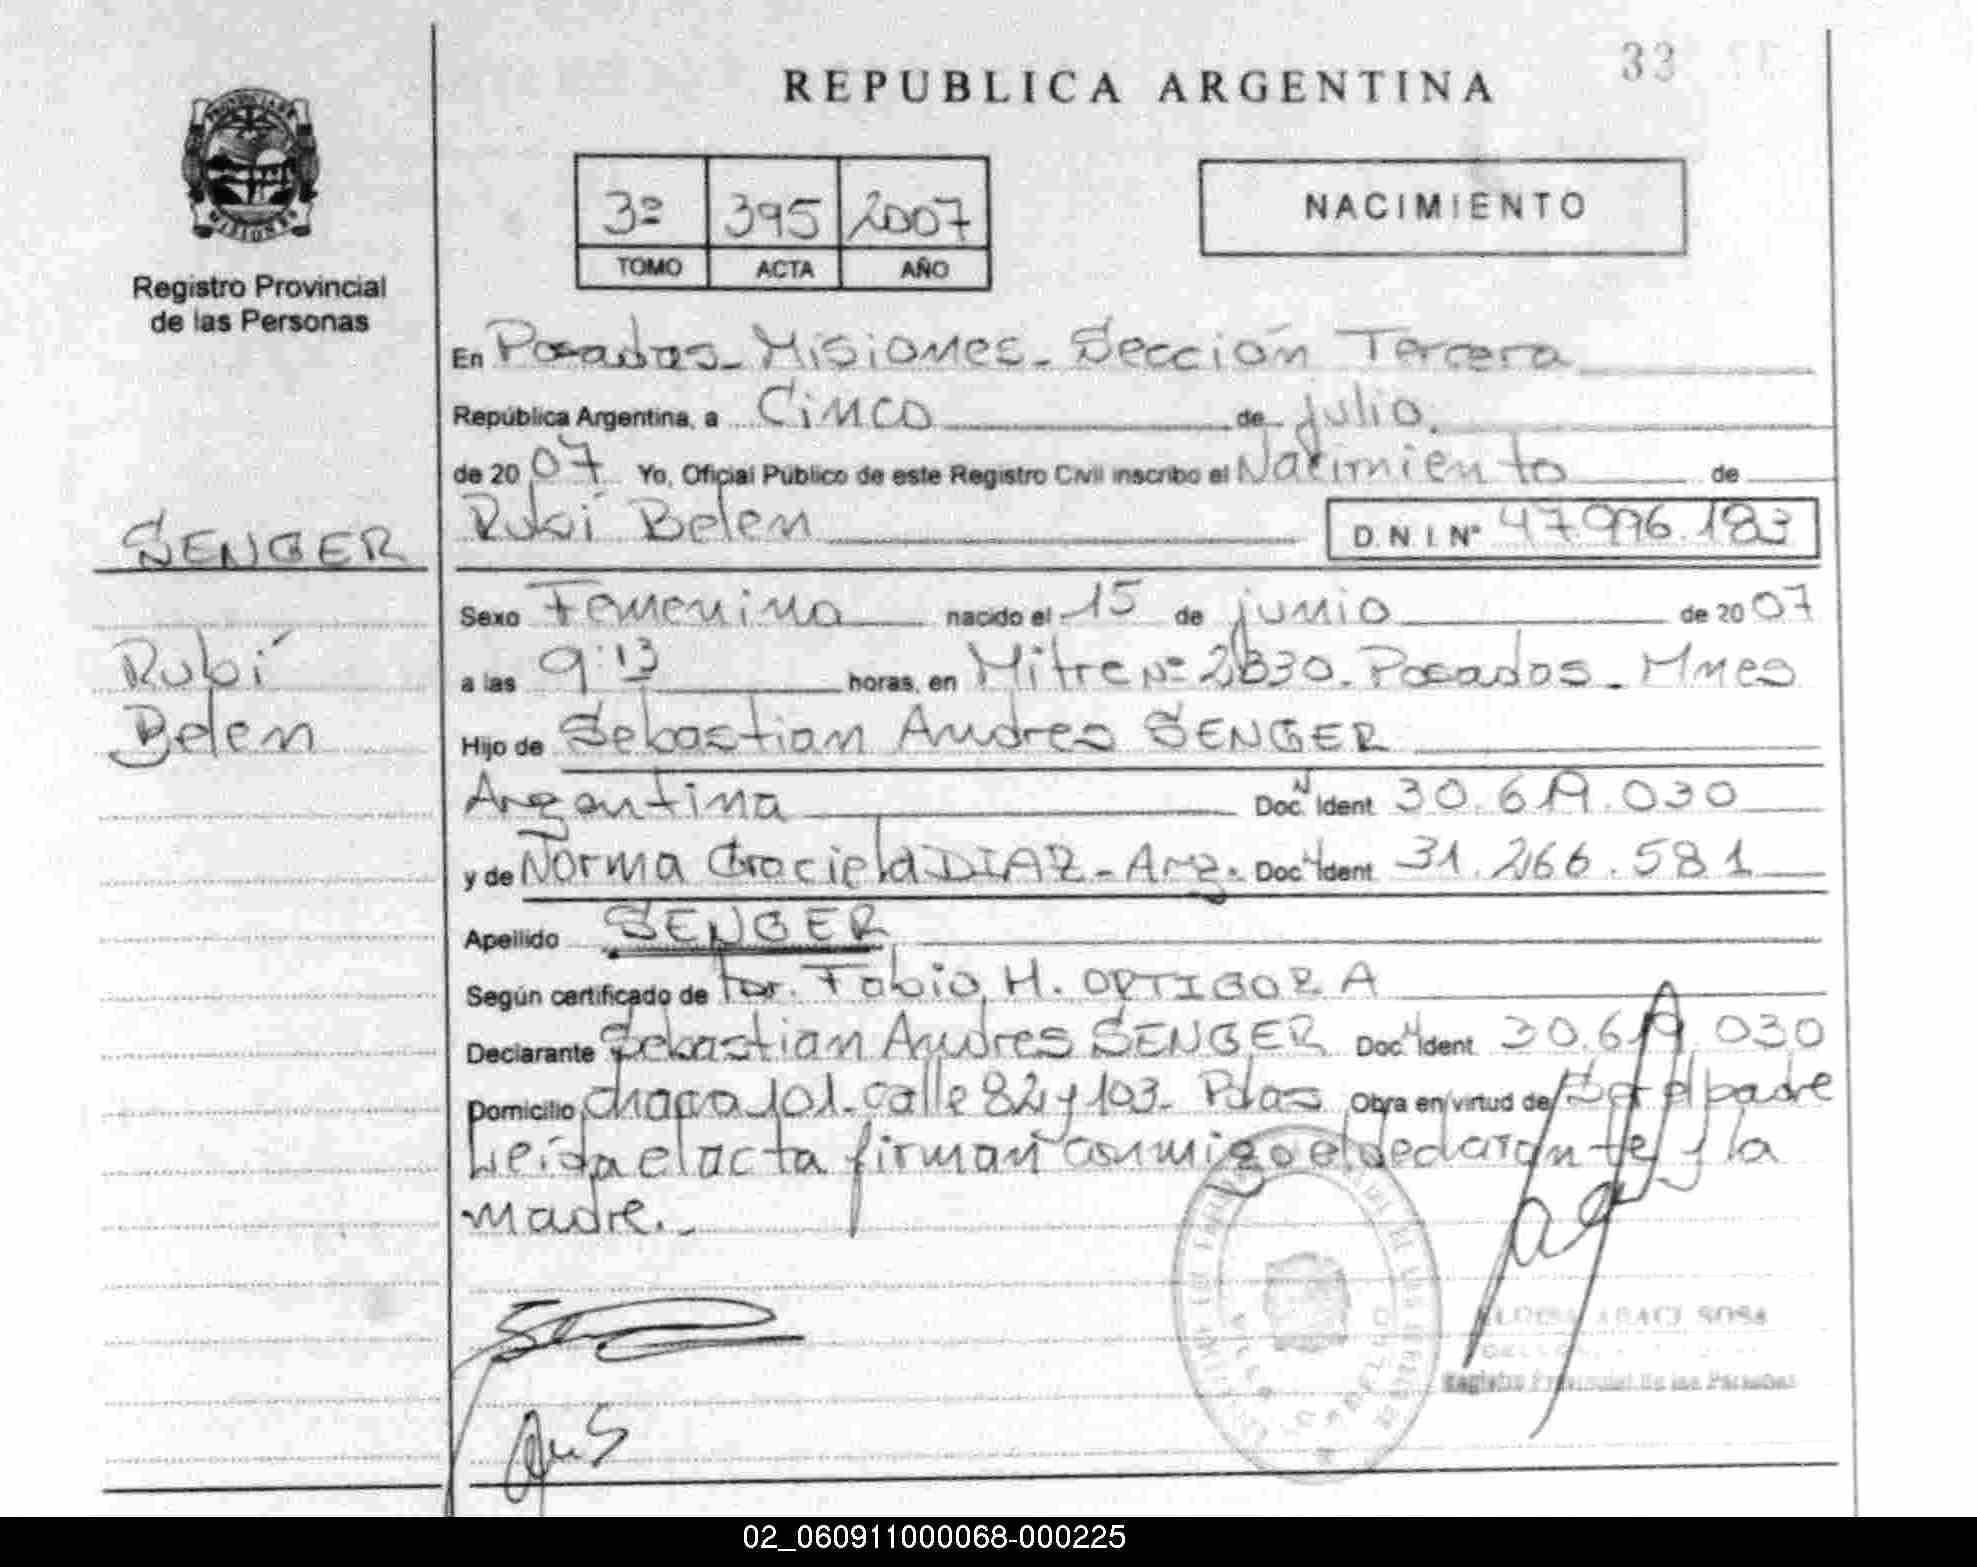 33
REPUBLICA ARGENTINA
3º 395 2007
TOMO ACTA AÑO
NACIMIENTO
MISIONES
Registro Provincial
de las Personas
En Posadas - Misiones - Sección Tercera
República Argentina, a Cinco de julio.
de 20 07 Yo, Oficial Público de este Registro Civil inscribo el Nacimiento de
SENGER
Rubí Belen D.N.I. Nº 47996.183
Sexo Femenina nacido el 15 de junio de 20 07
Rubí
a las 9:13 horas, en Mitre Nº 2330. Posadas - Mnes
Belen
Hijo de Sebastian Andres SENGER
Argentina Doc. N Ident 30.619.030
y de Norma Graciela DIAZ - Arg. Doc. N Ident 31.266.581
Apellido SENGER
Según certificado de Dr. Fabio H. ORTIGOZA
Declarante Sebastian Andres SENGER Doc. N Ident 30.619.030
Domicilio chacra 101. calle 82 y 103 - Pdas Obra en virtud de Ser el padre
Leída el acta firman conmigo el declarante y la
madre.
ARACI SOSA
Registro Provincial de las Personas
02_060911000068-000225